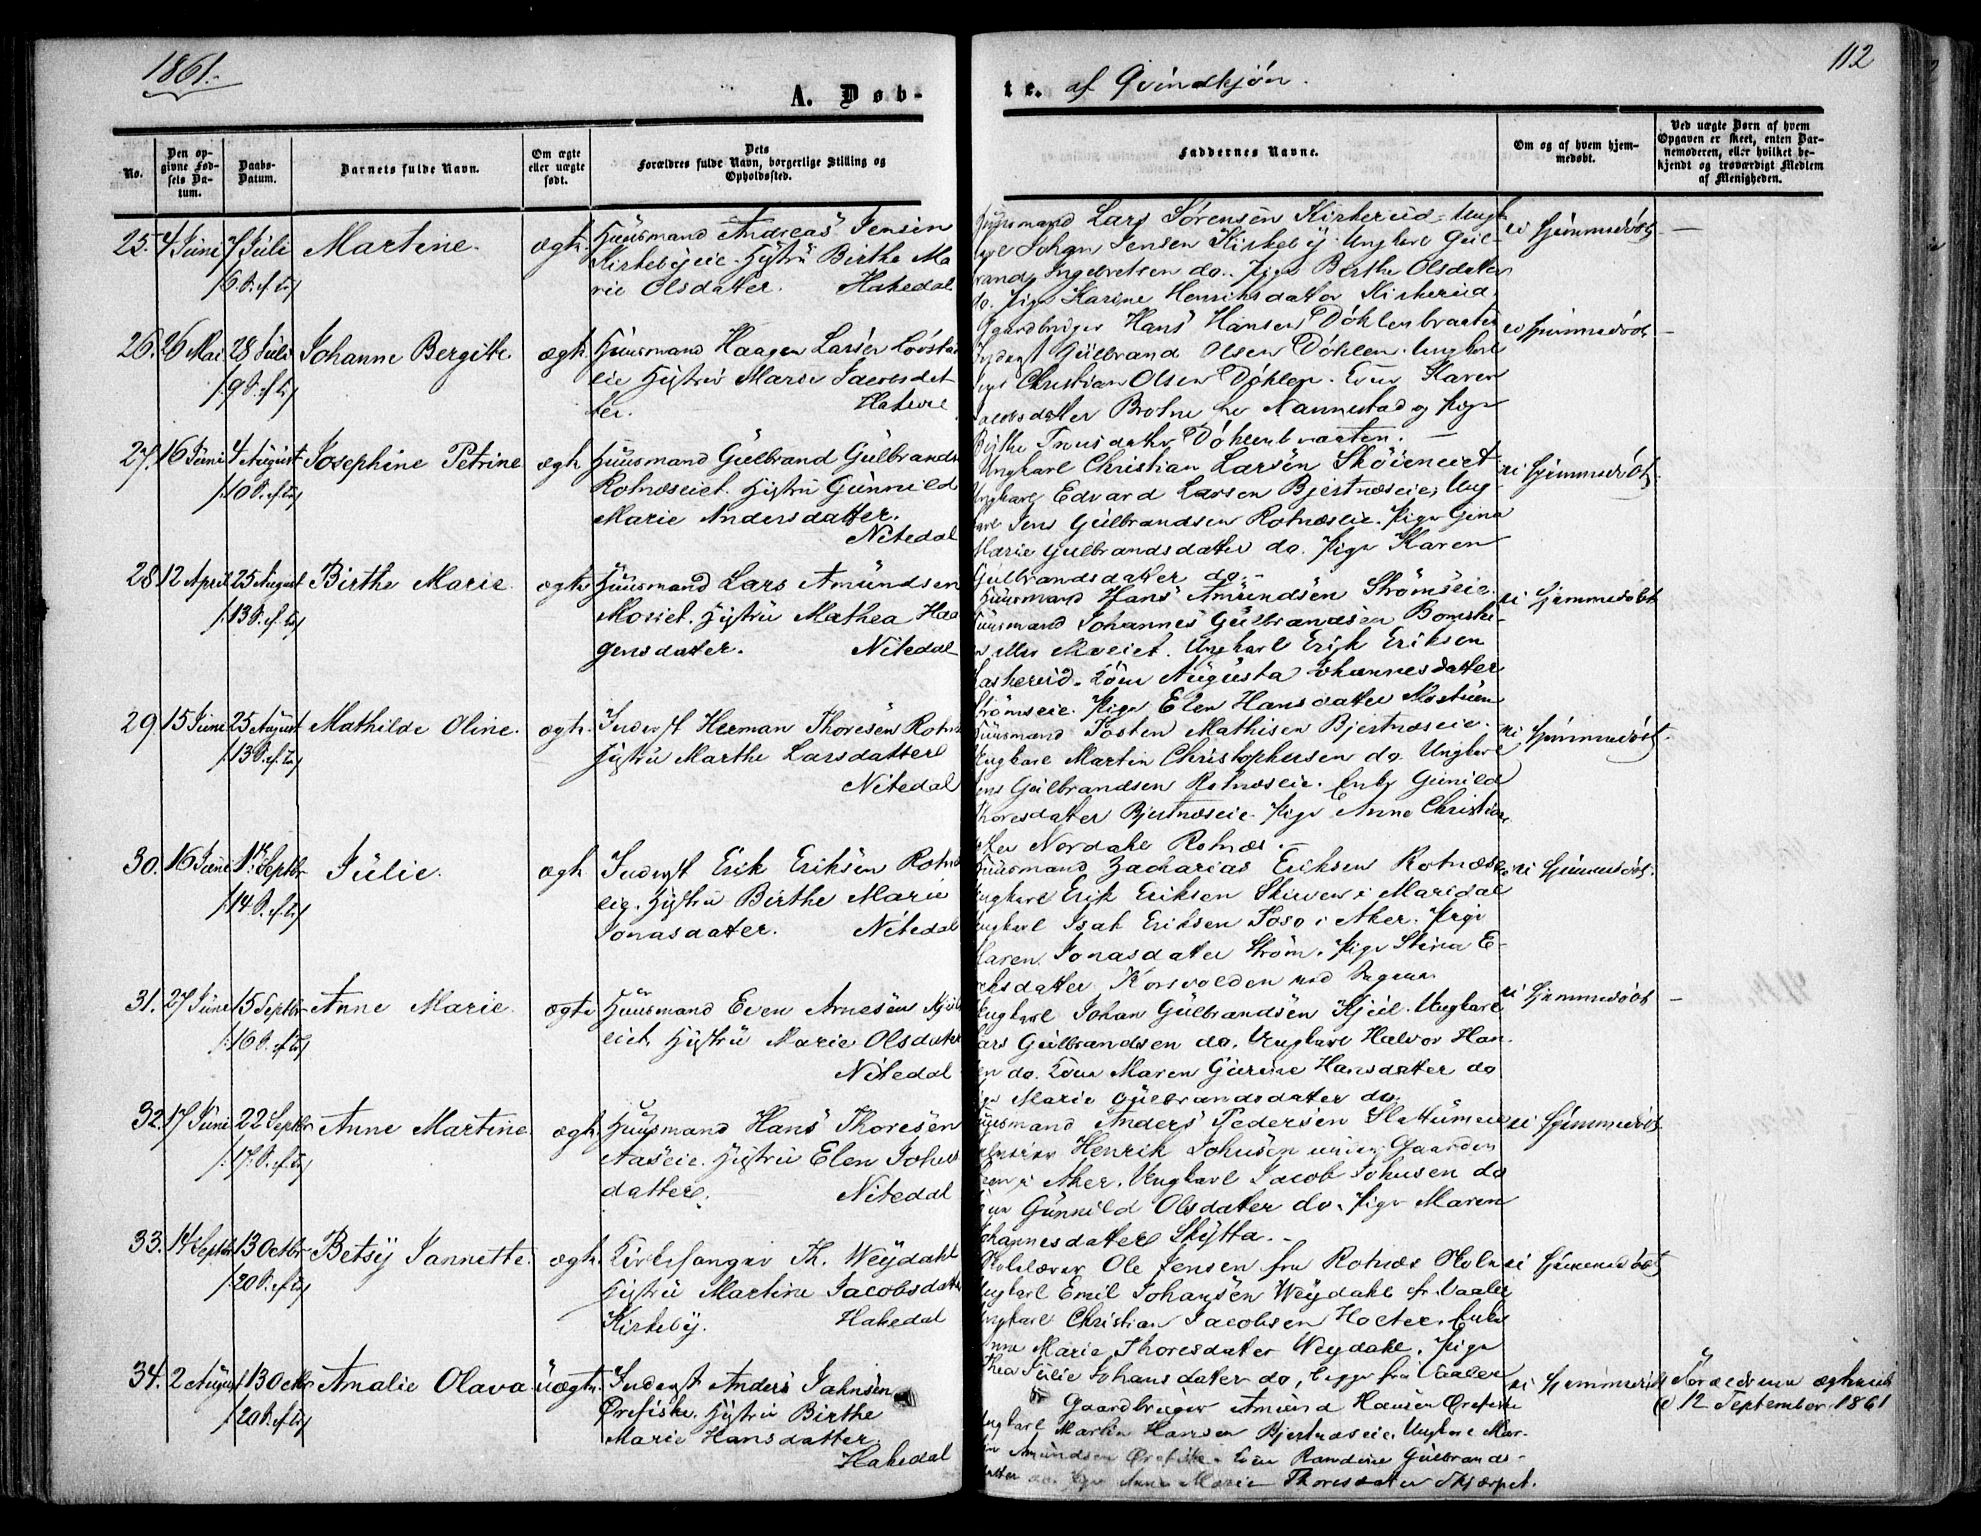 1861.
112
A. Døb-
te. af Qvindkjøn.
No.
Den op-
givne Fød-
sels Da-
tum.
Daabs-
Datum.
Barnets fulde Navn.
Om ægte
eller uægte
født.
Dets
Forældres fulde Navn, borgerlige Stilling og
Opholdssted.
Faddernes Navne.
Om og af hvem hjem-
medøbt.
Ved uægte Børn af hvem
Opgaven er skeet, enten Bar-
nemoderen, eller hvilket be-
kjendt og troværdigt Medlem
af Menigheden.
25. 4 Juni 7 Juli Martine. ægte Huusmand Andreas Jensen
6 S. ef. Tr. Kirkebyeie. Hustru Birthe Ma
rie Olsdatter. Hakedal
Huusmand Lars Sørensen Kirkerud. Ung-
karl Johan Jensen Kirkeby. Ungkarl Gul-
brand Ingebretsen do. Pige Berthe Olsdatter
do. Pige Karine Henriksdatter Kirkerud.
ei hjemmedøbt —
26. 26 Mai 28 Juli Johanne Bergitte ægte Huusmand Haagen Larsen
9 S. ef. Tr. eie Hustru Marie Jacobsdat
ter.
Gaardbruger Hans Hansen Døhlenbraaten
Inderst Gulbrand Olsen Døhlen. Ungkarl
Christian Olsen Døhlen. Karen
Jacobsdatter Nannestad og Pige
Døhlenbraaten. —
ei hjemmedøbt —
27. 16 Juni 4 August Josephine Petrine ægte Huusmand Gulbrand Gulbrands
10 S. ef. Tr. Rotnæseiet. Hustru Gunnild
Marie Andersdatter.
Nitedal
Ungkarl Christian Larsen
Ungkarl Edvard Larsen Bjertnæseie, Ung
karl Jens Gulbrandsen Rotnæseie. Pige Gina
Marie Gulbrandsdatter do. Pige Karen
Gulbrandsdatter do. —
ei hjemmedøbt.
28. 12 April 25 August Birthe Marie. ægte Huusmand Lars Amundsen
13 S. ef. Tr. Moeiet. Hustru Mathea Haa
gensdatter. Nitedal
Huusmand Hans Amundsen Strømseie.
Huusmand Johannes Gulbrandsen
Moeiet. Ungkarl Erik Eriksen
Kone Augusta Johannesdatter
Strømseie. Pige Elen Hansdatter
ei hjemmedøbt
29. 15 Juni 25 August Mathilde Oline. ægte. Inderst Herman Thoresen Rotnæs
13 S. ef. Tr. Hustru Marthe Larsdatter
Nitedal
Huusmand Torsten Mathisen Bjertnæseie.
Ungkarl Martin Christophersen do. Ungkarl
Jens Gulbrandsen Rotnæseie. Enke Gunild
Thoresdatter Bjertnæseie. Pige Anne Christian
Nordahl Rotnæs. —
ei hjemmedøbt.
30. 16 Juni 1st Septbr Julie. ægte Inderst Erik Eriksen Rotnæs
14 S. ef. Tr. eie. Hustru Birthe Marie
Jonasdatter. Nitedal
Huusmand Zacharias Eriksen Rotnæs
Ungkarl Erik Eriksen Skirven i Maridal
Ungkarl Isak Eriksen i Aker. Pige
Karen Jonasdatter Strøm. Pige Stina E-
riksdatter Korsvolden
ei hjemmedøbt.
31. 27 Juni 15 Septbr Anne Marie. ægte Huusmand Even Arnesen
16 S. ef. Tr. eiet. Hustru Marie Olsdatter
Nitedal
Ungkarl Johan Gulbrandsen Kjul. Ungkarl
Lars Gulbrandsen do. Ungkarl Halvor Han-
sen do. Kone Maren Gurine Hansdatter do
Pige Marie Gulbrandsdatter do.
ei hjemmedøbt —
32. 17 Juni 22 Septbr Anne Martine. ægte. Huusmand Hans Thoresen
17. S. ef. Tr. Aaseie. Hustru Elen Johns
datter. Nitedal
Huusmand Anders Pedersen Slattumeie
Henrik Johnsen under Gaarden
i Aker. Ungkarl Jacob Johnsen do
Gunnild Olsdatter do. Pige Maren
Johannesdatter Skytta. —
ei hjemmedøbt.
33. 14 Septbr 13 Octbr Betsy Jannette. ægte. Kirkesanger Th. Weydahl
20 S. ef. Tr. Hustru Martine Jacobsdatter
Kirkeby. Hakedal
Skolelærer Ole Jensen fra Rotnæs Skole
Ungkarl Emil Johansen Weydahl fr. Vaaler
Ungkarl Christian Jacobsen Holter.
Marie Thoresdatter Weydahl. Pige
Thea Julie Johansdatter do, begge fra Vaaler
ei hjemmedøbt
34. 2 August 13 Octbr Amalie Olava uægte. Inderst Anders Jahnsen
20 S. ef. Tr. Ørefiske. Hustru Birthe
Marie Hansdatter.
Hakedal
Gaardbruger Amund Hansen Ørefiske
Ungkarl Martin Hansen Bjertnæseie. Ungkarl Mar-
tin Amundsen Ørefiske. Randine Gulbrands-
datter do. Pige Anne Marie Thoresdatter
ei hjemmedøbt
Forældrene ægteviet
12 September 1861